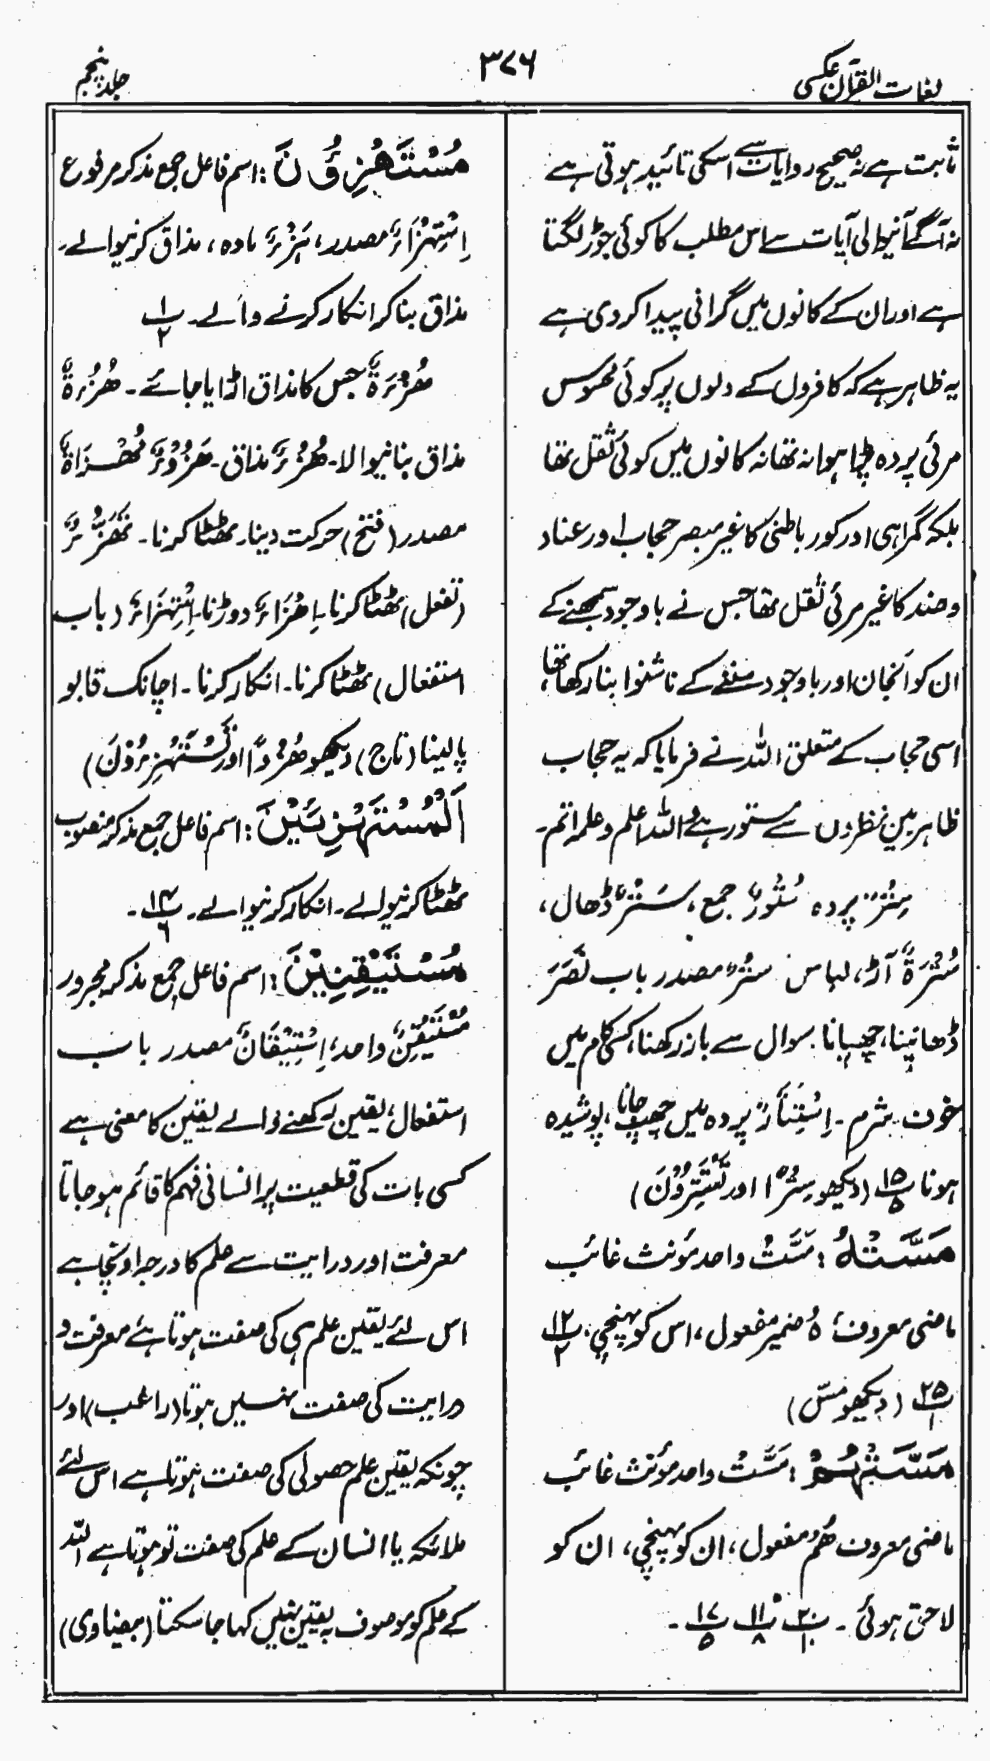 لغات القرآن عکسی
۳۷۶
جلد پنجم
ثابت ہے نہ صحیح روایات سے اسکی تائید ہوتی ہے
نہ آگے آنیوالی آیات سے اس مطلب کا کوئی جوڑ لگتا
ہے اور ان کے کانوں میں گرانی پیدا کر دی ہے
یہ ظاہر ہے کہ کافروں کے دلوں پر کوئی ٹھوس
مرئی پردہ پڑا ہوا نہ تھا نہ کانوں میں کوئی ثقل تھا
بلکہ گمراہی اور کور باطنی کا غیر مبصر حجاب اور عناد
و ضد کا غیر مرئی ثقل تھا جس نے باوجود سمجھنے کے
ان کو انجان اور باوجود سننے کے ناشنوا بنا رکھا تھا،
اسی حجاب کے متعلق اللہ نے فرمایا کہ یہ حجاب
ظاہر بین نظروں سے مستور ہے واللہ اعلم وعلمہ اتم۔
سِتْرٌ پردہ سُتُوْرٌ جمع، سَتْرٌ ڈھال،
سُتْرَةٌ آڑ، لباس سَتْرٌ مصدر باب نَصَرَ
ڈھانپنا، چھپانا سوال سے باز رکھنا، کسی کام میں
خوف۔ شرم۔ اِسْتِتَارٌ پردہ میں چھپ جانا، پوشیدہ
ہونا پ۱۵/۵ (دیکھو سِتْرًا اور تَسْتَتِرُوْنَ)
مَسَّتْهُ: مَسَّتْ واحد مؤنث غائب
ماضی معروف ہُ ضمیر مفعول، اس کو پہنچی، پ۱۲/۲
پ۲۵/۱ (دیکھو مسّ)
مَسَّتْهُمْ: مَسَّتْ واحد مؤنث غائب
ماضی معروف ھُمْ مفعول، ان کو پہنچی، ان کو
لاحق ہوئی۔ پ۲/۱۰ پ۱۱/۸ پ۱۷/۵۔
مُسْتَهْزِءُوْنَ: اسم فاعل جمع مذکر مرفوع
اِسْتِهْزَاءٌ مصدر، هَزْءٌ مادہ، مذاق کرنیوالے۔
مذاق بنا کر انکار کرنے والے۔ پ۱/۲
هُزْءَةٌ جس کا مذاق اڑایا جائے۔ هُزَءَةٌ
مذاق بنانیوالا۔ هُزْءٌ مذاق۔ هَزُوْءٌ مَهْزَاَةٌ
مصدر (فتح) حرکت دینا۔ ٹھٹا کرنا۔ تَهَزُّءٌ
(تفعل) ٹھٹا کرنا۔ اِهْزَاءٌ دوڑنا۔ اِسْتِهْزَاءٌ (باب
استفعال) ٹھٹا کرنا۔ انکار کرنا۔ اچانک قابو
پالینا (تاج) (دیکھو هُزُوًا اور تَسْتَهْزِءُوْنَ)
اَلْمُسْتَهْزِئِيْنَ: اسم فاعل جمع مذکر منصوب
ٹھٹا کرنیوالے۔ انکار کرنیوالے۔ پ۱۴/۶۔
مُسْتَيْقِنِيْنَ: اسم فاعل جمع مذکر مجرور
مُسْتَيْقِنٌ واحد، اِسْتِيْقَانٌ مصدر باب
استفعال، یقین رکھنے والے یقین کا معنی ہے
کسی بات کی قطعیت پر انسانی فہم کا قائم ہو جانا
معرفت اور درایت سے علم کا درجہ اونچا ہے
اس لئے یقین علم ہی کی صفت ہوتا ہے معرفت و
درایت کی صفت نہیں ہوتا (راغب) اور
چونکہ یقین علم حصولی کی صفت ہوتا ہے اس لئے
ملائکہ یا انسان کے علم کی صفت تو ہوتا ہے اللہ
کے علم کو موصوف بہ یقین نہیں کہا جا سکتا (بیضاوی)